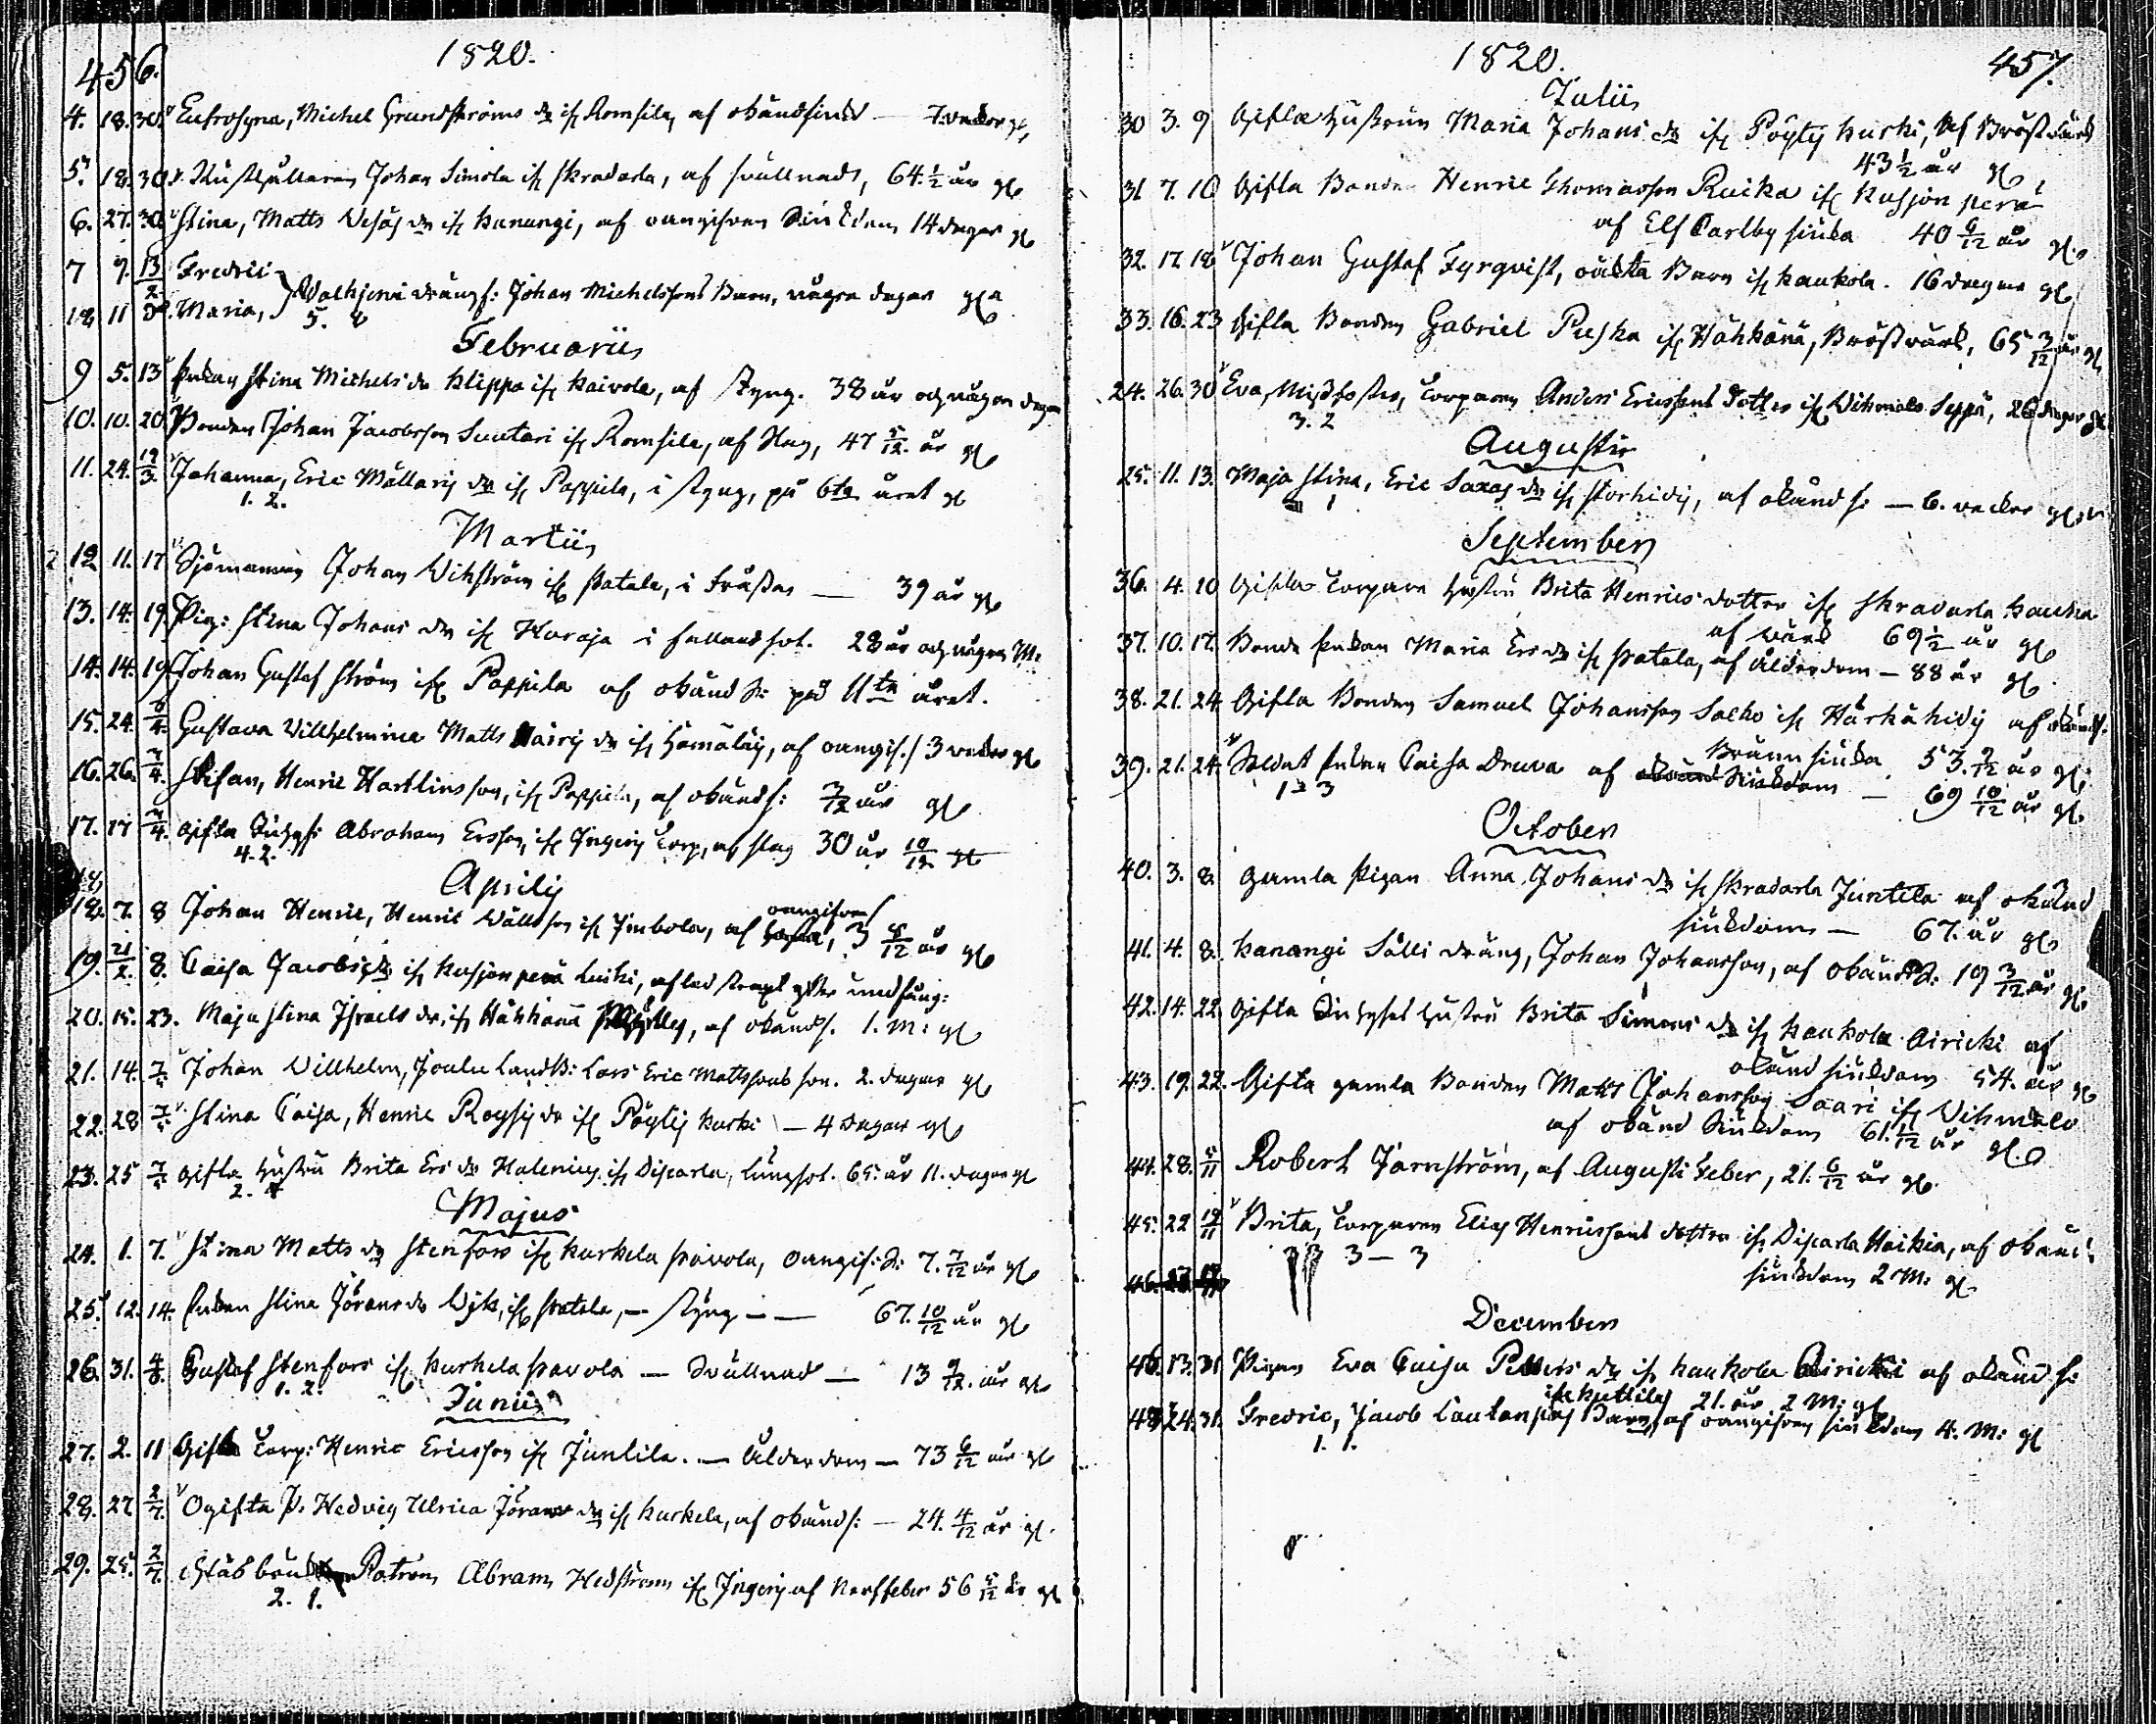 456.
1820.
4. 18. 30. Eufrosyna, Michel Grundströms dr ifr Romsila, af okänd siukd — 7. veckor gl
5. 18. 30. Rusthållaren Johan Simola ifr Skradarla, af svullnad, 64 1/2 år gl
6. 27. 30. Stina, Matts dr ifr Kanungi, af oangifven siukdom 14 dagar gl
7 9. 13/2 Fredric
18 11 Maria, drängs: Johan Michelssons Barn, några dagar gl
5. 2
Februarii
9 5. 13 Enkan Stina Michels dr Klippa ifr Kaivola, af styng. 38 år och någon dagar
10. 10. 20. Bonden Johan Jacobsson Suutari ifr Romsila, af slag, 47 5/12 år gl
11. 24. 12/3. Johanna, Eric Mällarij dr ifr Pappila, i styng, på 6te året gl
1. 2.
Martii
12 11. 17 Sjömannen Johan Wikström ifr Patala, i — 39 år gl
13. 14. 19. Pig: Stina Johans dr ifr Karaja i fallandsot. 28 år och några M.
14. 14. 19. Johan Gustaf Ström ifr Pappila af okänd S: på 11te året.
15. 24. 6/4. Gustava Willhelmina Matts Nairij dr ifr Hämäläij, af oangif. 3 veckor gl
16. 26. 7/4. Stefan, Henric Hartlinsson, ifr Pappila, af okänd s: 3/12 år gl
17. 17 7/4. Gifta Abraham Ersson, ifr Ingerij Torp, af slag 30 år 10/12 gl
4. 2.
Aprilij
18. 7. 8 Johan Henric, Henric Wällsson ifr Jmbola, af oangifven, 3 5/12 år gl
19. 21/2. 8. Caisa Jacobs dr ifr Kusjonperä Luiki,
20. 15. 23. Maja Stina Israels dr, ifr Hähkänä, af okänd s. 1. M: gl
21. 14. 7/5. Johan Willhelm, Joulu Landtb: Lars Eric Mattssons son. 2. dagar gl
22. 28 7/5. Stina Caisa, Henric Roysij dr ifr Pöytij Kurki — 4 dagar gl
23. 25 7/5 Gifta hustru Brita Ers dr Halenius ifr Discarla, lungsot. 65. år 11. dagar gl
2. 4
Majus
24. 1. 7. Stina Matts dr Stenfors ifr Kurkela Pavola, Oangif: S: 7. 7/12 år gl
25. 12. 14. Enkan Stina Jörans dr Wik, ifr Patala, — styng — 67. 10/12 år gl
26. 31. 4/8. Gustaf Stenfors ifr Kurkela Pavola — Svullnad — 13 9/12. år gl
1. 2.
Junii
27. 2. 11 Gifta Torp: Henric Ericsson ifr Juntila. — Ålderdom — 73 6/12 år gl
28. 27 2/7. Ogifta P. Hedvig Ulrica Jörans dr ifr Kurkela, af okänd s: — 24. 4/12 år gl.
29. 25. 2/7. Patron Abram Hedström ifr Ingerij af Nerffeber 56 5/12 år gl
2. 1.
1820.
457.
Julii
30 3. 9 Gifta Hustrun Maria Johans dr ifr Pöytij Kurki, af Bröstvärck
43 1/2 år gl
31 7. 10 Gifta Bonden Henric Thomasson Ruika ifr Kusjonperä
af Elf Carlby siuka 40 6/12 år gl.
32. 17. 18 Johan Gustaf Fyrqvist, oäckta Barn ifr Kaukola. 16 dagar gl
33. 16. 23 Gifta Bonden Gabriel Pusha ifr Hähkänä, Bröstvärck, 65 3/12 år gl
24. 26. 30 Eva, Torparen Anders Ericssons dotter ifr Wihmalo Seppä, 26 dagar gl
3. 2
Augusti
25. 11. 13. Maja Stina, Eric Saxas dr ifr Storhidij, af okänd s: — 6. veckor gl.
1
September
36. 4. 10 Gifta Torpare hustru Brita Henrics dotter ifr Skradarla Kauka
af värck 69 1/2 år gl
37. 10. 17. Bonde Enkan Maria Ers dr ifr Patala, af ålderdom — 88 år gl.
38. 21. 24 Gifta Bonden Samuel Johansson Salko ifr Härkähidij af
Brännsiuka 53. 9/12 år gl;
39. 21. 24. Soldat Enkan Caisa Druva af siukdom — 69 10/12 år gl.
1 2 3
October
40. 3. 8. gamla Pigan Anna Johans dr ifr Skradarla Juntila af okänd
siukdom — 67. år gl
41. 4. 8. Kanangi Sälli dräng, Johan Johansson, af okänd S: 19 3/12 år gl
42. 14. 22. Gifta hustru Brita Simons dr ifr Kaukola Airicki af
okänd siukdom 54. år gl
43. 19. 22. Gifta gamla Bonden Matts Johansson Saari ifr Wihmalo
af okänd siukdom 61. 1/12 år gl.
44. 28. 5/11 Robert Jernström, af Augusti Feber, 21. 6/12 år gl.
45. 22 19/11 Brita, Torparen Elias Henricssons dotter ifr Discarla Haikia, af okänd
siukdom 2 M: gl
3 — 3
December
46. 13. 31 Pigan Eva Caisa Petters dr ifr Kaukola Airicki af okänd s:
21. år 2 M: gl
48 24. 31. Fredric, Jacob Barn, ifr Kuttila af oangifven siukdom 4. M: gl
1. 1.